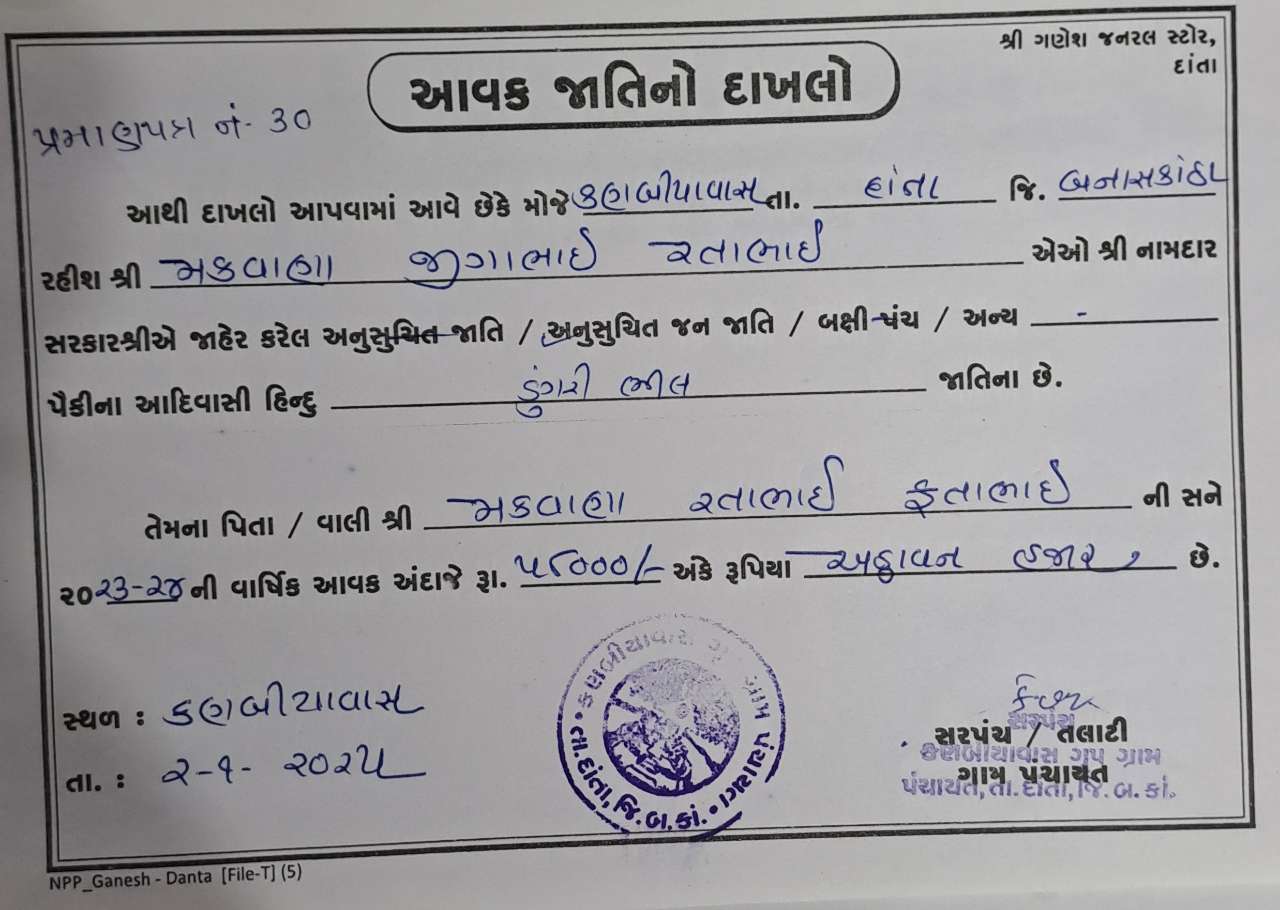 શ્રી ગણેશ જનરલ સ્ટોર,
દાંતા
આવક જાતિનો દાખલો
પ્રમાણપત્ર નં- 30
આથી દાખલો આપવામાં આવે છેકે મોજે કણબીયાવાસ તા. દાંતા જિ. બનાસકાંઠા
રહીશ શ્રી મકવાણા જીગાભાઈ રતાભાઈ એઓ શ્રી નામદાર
સરકારશ્રીએ જાહેર કરેલ અનુસુચિત જાતિ / અનુસુચિત જન જાતિ / બક્ષી પંચ / અન્ય -
પૈકીના આદિવાસી હિન્દુ ડુંગરી ભીલ જાતિના છે.
તેમના પિતા / વાલી શ્રી મકવાણા રતાભાઈ ફતાભાઈ ની સને
૨૦૨૩-૨૪ ની વાર્ષિક આવક અંદાજે રૂા. ૫૮૦૦૦/- અંકે રૂપિયા અઠ્ઠાવન હજાર, છે.
સ્થળ : કણબીયાવાસ
તા. : ૨-૧- ૨૦૨૫
કણબીયાવાસ ગૃપ ગ્રામ પંચાયત
તા.દાંતા, જિ.બ.કાં.
સરપંચ
સરપંચ / તલાટી
કણબીયાવાસ ગૃપ ગ્રામ
ગ્રામ પંચાયત
પંચાયત,તા.દાંતા,જિ.બ.કાં.
NPP_Ganesh - Danta [File-T] (5)